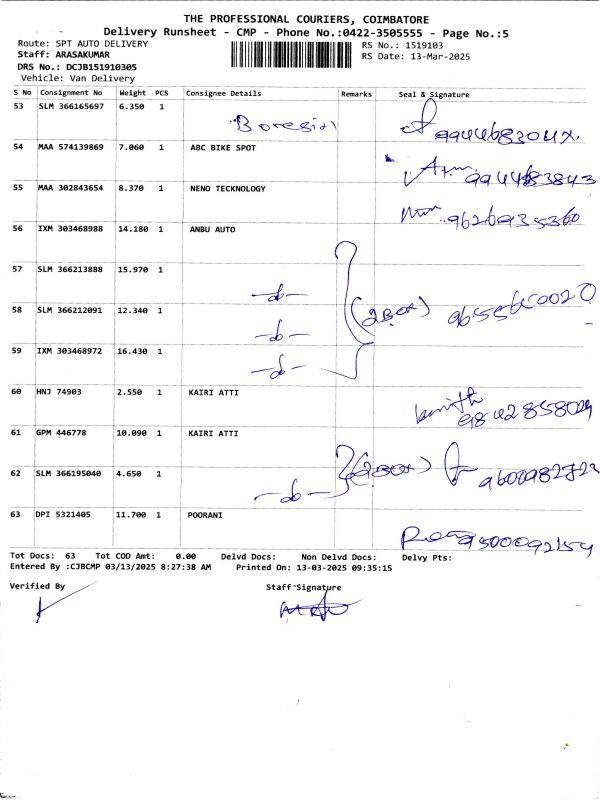 THE PROFESSIONAL COURIERS, COIMBATORE
Delivery Runsheet - CMP - Phone No.:0422-3505555 - Page No.:5
Route: SPT AUTO DELIVERY
RS No.: 1519103
Staff: ARASAKUMAR
RS Date: 13-Mar-2025
DRS No.: DCJB151910305
Vehicle: Van Delivery
S No Consignment No Weight PCS Consignee Details Remarks Seal & Signature
53 SLM 366165697 6.350 1
54 MAA 574139869 7.060 1 ABC BIKE SPOT
55 MAA 302843654 8.370 1 NENO TECKNOLOGY
56 IXM 303468988 14.180 1 ANBU AUTO
57 SLM 366213888 15.970 1
58 SLM 366212091 12.340 1
59 IXM 303468972 16.430 1
60 HNJ 74903 2.550 1 KAIRI ATTI
61 GPM 446778 10.090 1 KAIRI ATTI
62 SLM 366195040 4.650 1
63 DPI 5321405 11.700 1 POORANI
9500092154
Tot Docs: 63 Tot COD Amt: 0.00 Delvd Docs: Non Delvd Docs: Delvy Pts:
Entered By :CJBCMP 03/13/2025 8:27:38 AM Printed On: 13-03-2025 09:35:15
Verified By Staff Signature